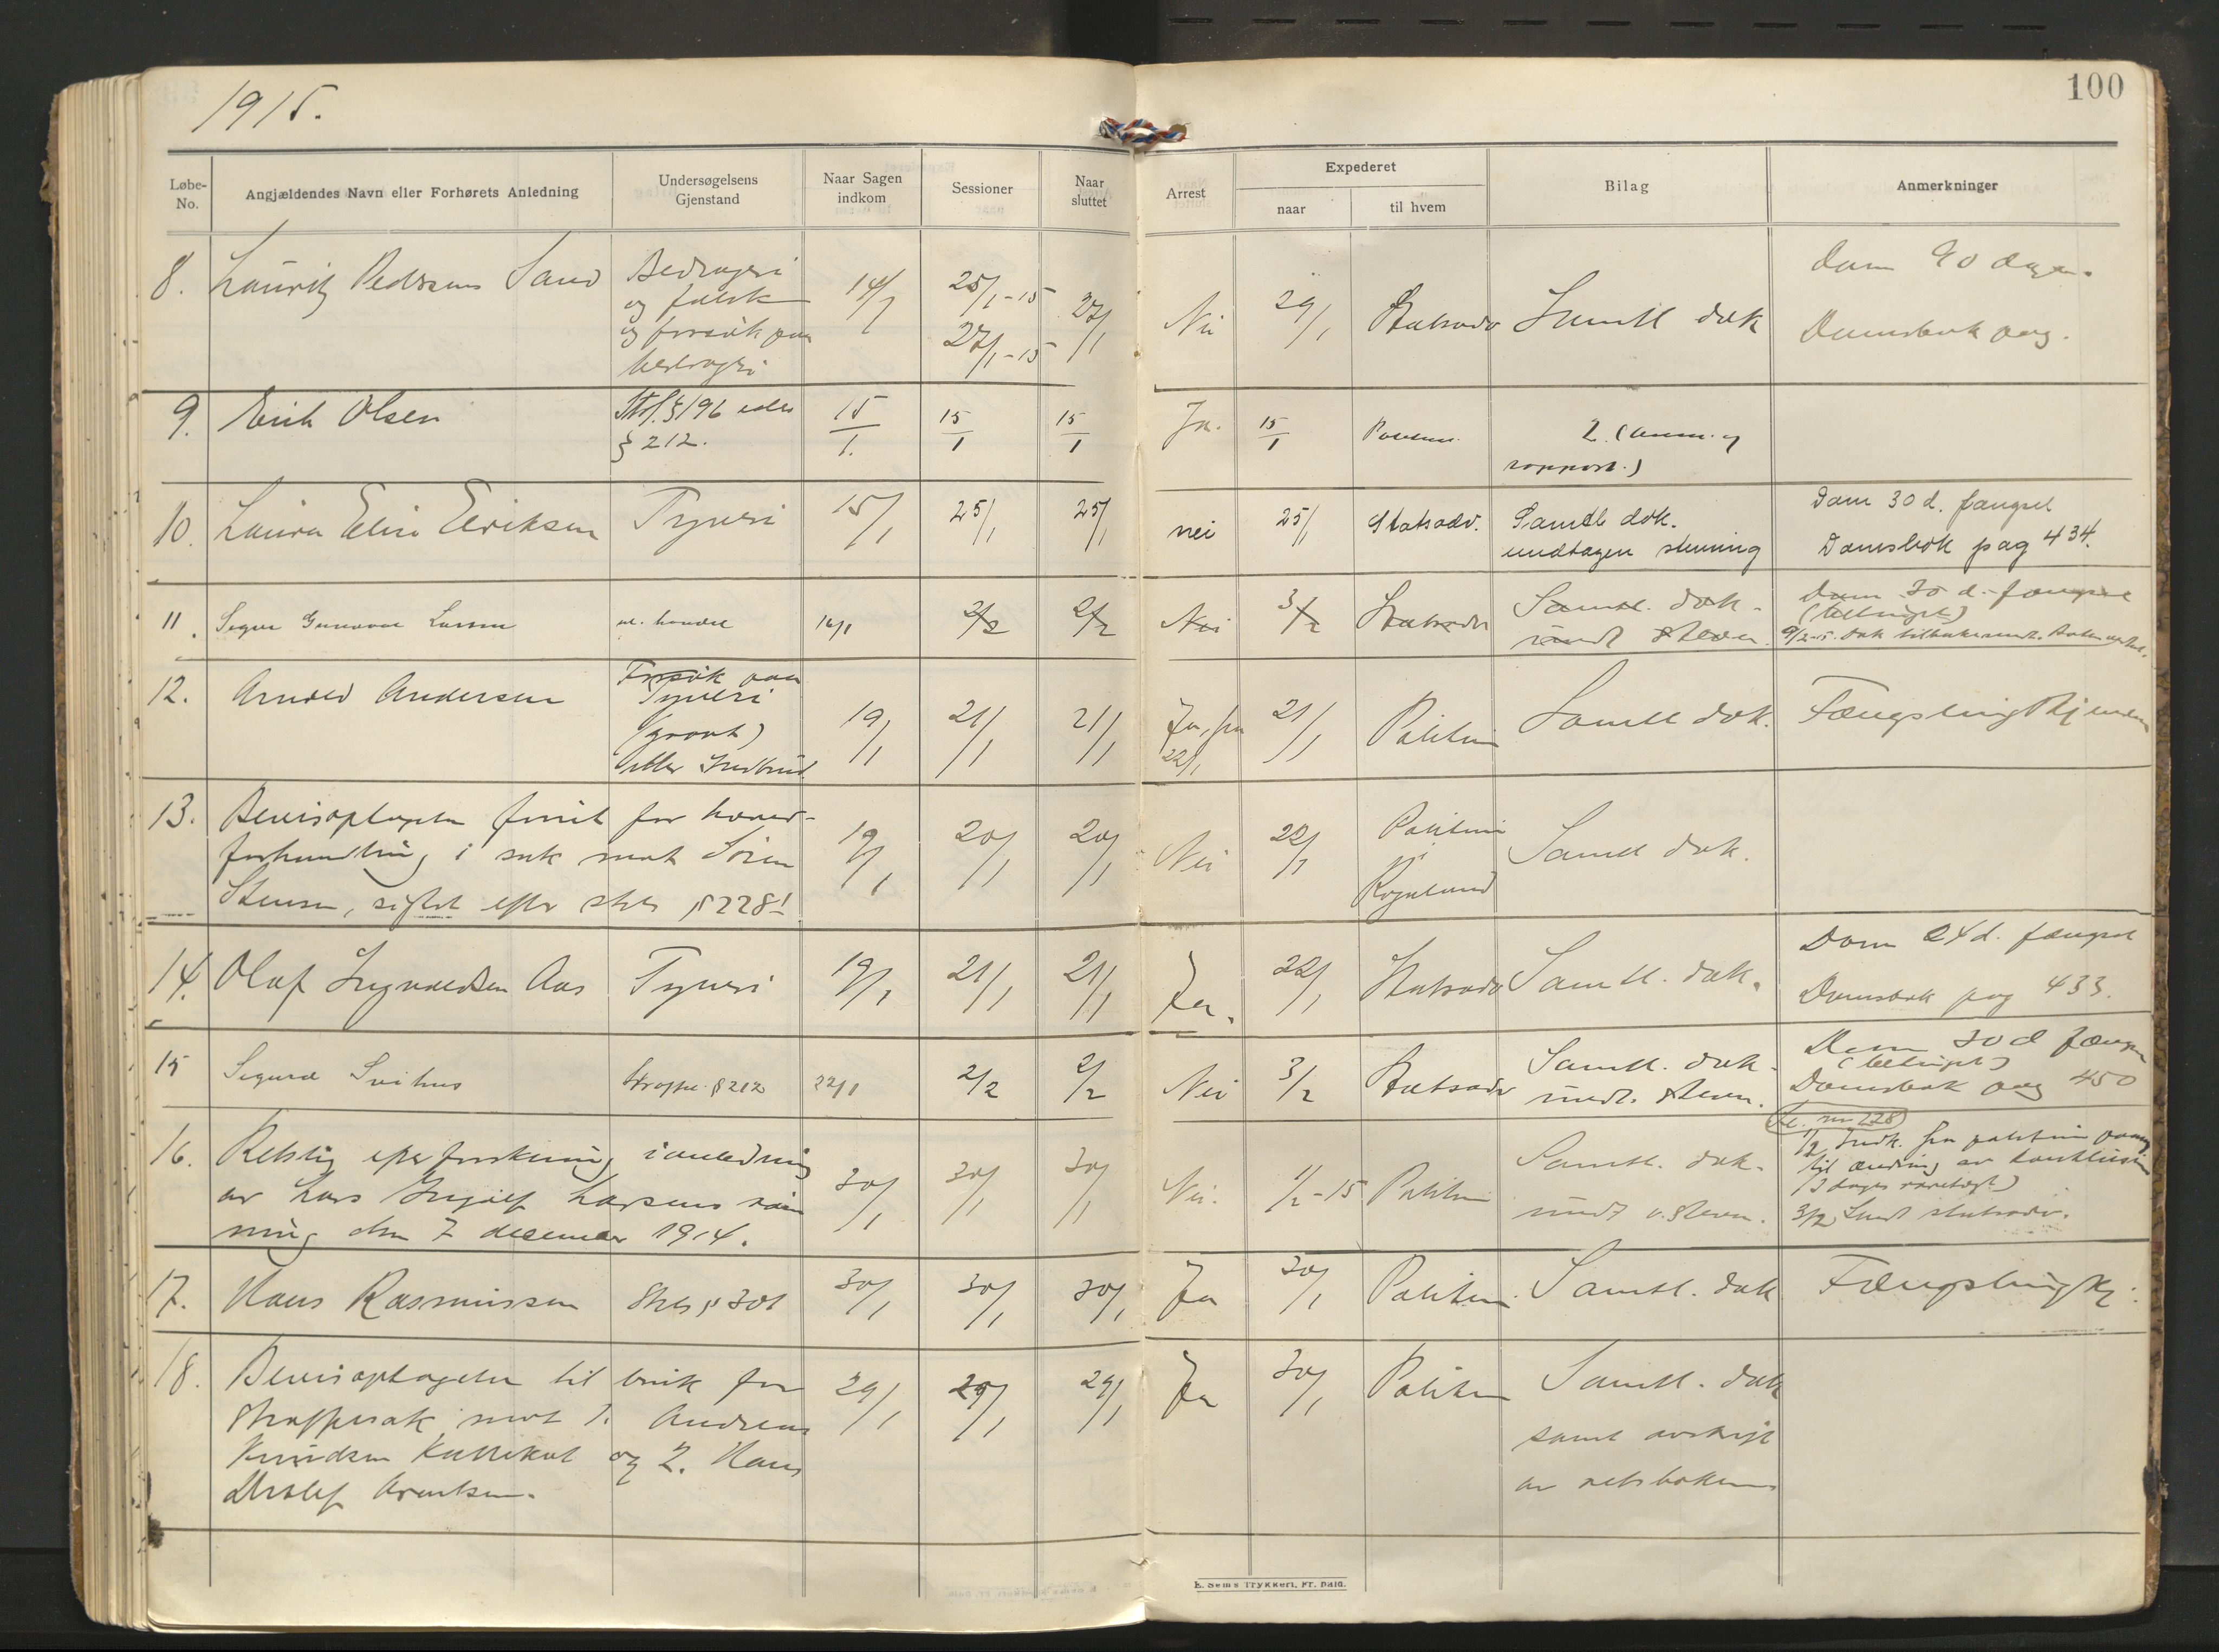 1915.
100
Løbe-
No.
Angjældendes Navn eller Forhørets Anledning
Undersøgelsens
Gjenstand
Naar Sagen
indkom
Sessioner
Naar
sluttet
Arrest
Expederet
naar
til hvem
Bilag
Anmerkninger
8. Lauritz Pedersen Sand
Bedrageri
og falsk
og forsøk paa
bedrageri
14/1
25/1-15
27/1-15
27/1
Nei
29/1
Statsadv
Samtl dok
Dom 90 dage.
Domsbok pag.
9. Erik Olsen
Strl. § 196 eller
§ 212.
15/1.
15/1
15/1
Ja.
15/1
Politim.
2. (anm. og
rapport.)
10. Laura Elise Eriksen
Tyveri
15/1
25/1
25/1
nei
25/1
Statsadv.
Samtl dok.
undtagen stevning
Dom 30 d. fængsel
Domsbok pag 434.
11. Larsen
ul. handel
16/1
2/2
2/2
Nei
3/2
Statsadv
Samtl. dok.
undt steven.
Dom 30 d. fængsel
(betinget)
9/2-15. Dok tilbakesendt.
12. Arnold Andersen
Forsøk paa
Tyveri
(grovt)
eller Indbrud
19/1
21/1
21/1
Ja, fra
22/1
21/1
Politim
Samtl dok.
Fængslingskjendelse
13. Bevisoptagelse forut for hoved-
forhandling i sak mot Sören
Stensen, sigtet efter strls § 228 1
19/1
20/1
20/1
Nei
22/1
Politim
i
Rogaland
Samtl dok.
14. Olaf Ingvaldsen Aas
Tyveri
19/1
21/1
21/1
Ja.
22/1
Statsadv
Samtl. dok.
Dom 24 d. fængsel
Domsbok pag 433.
15 Sigurd Svihus
Straffel. § 212
22/1
2/2
2/2
Nei
3/2
Statsadv
Samtl. dok.
undt. steven.
Dom 30 d fængsel
(betinget)
Domsbok pag 450
16. Retslig efterforskning i anledning
av Lars Ingolf Larsens röm
ning den 7 december 1914.
30/1
30/1
30/1
Nei.
1/2-15
Politim
Samtl. dok.
undt v. steven.
nr 228
1/2 Indk. fra politim
til ændring av konklusion
3/2 Sendt statsadv.
17. Hans Rasmussen
Strls § 301
30/1
30/1
30/1
Ja
30/1
Politim.
Samtl. dok
Fængslingskj.
18. Bevisoptagelse til bruk for
straffesak mot 1. Andreas
Knudsen og 2. Hans
Detlef Arentsen.
29/1
29/1
29/1
Ja
30/1
Politim
Samtl. dok
samt avskrift
av retsboken
E. Sems Trykkeri, Fr. hald.